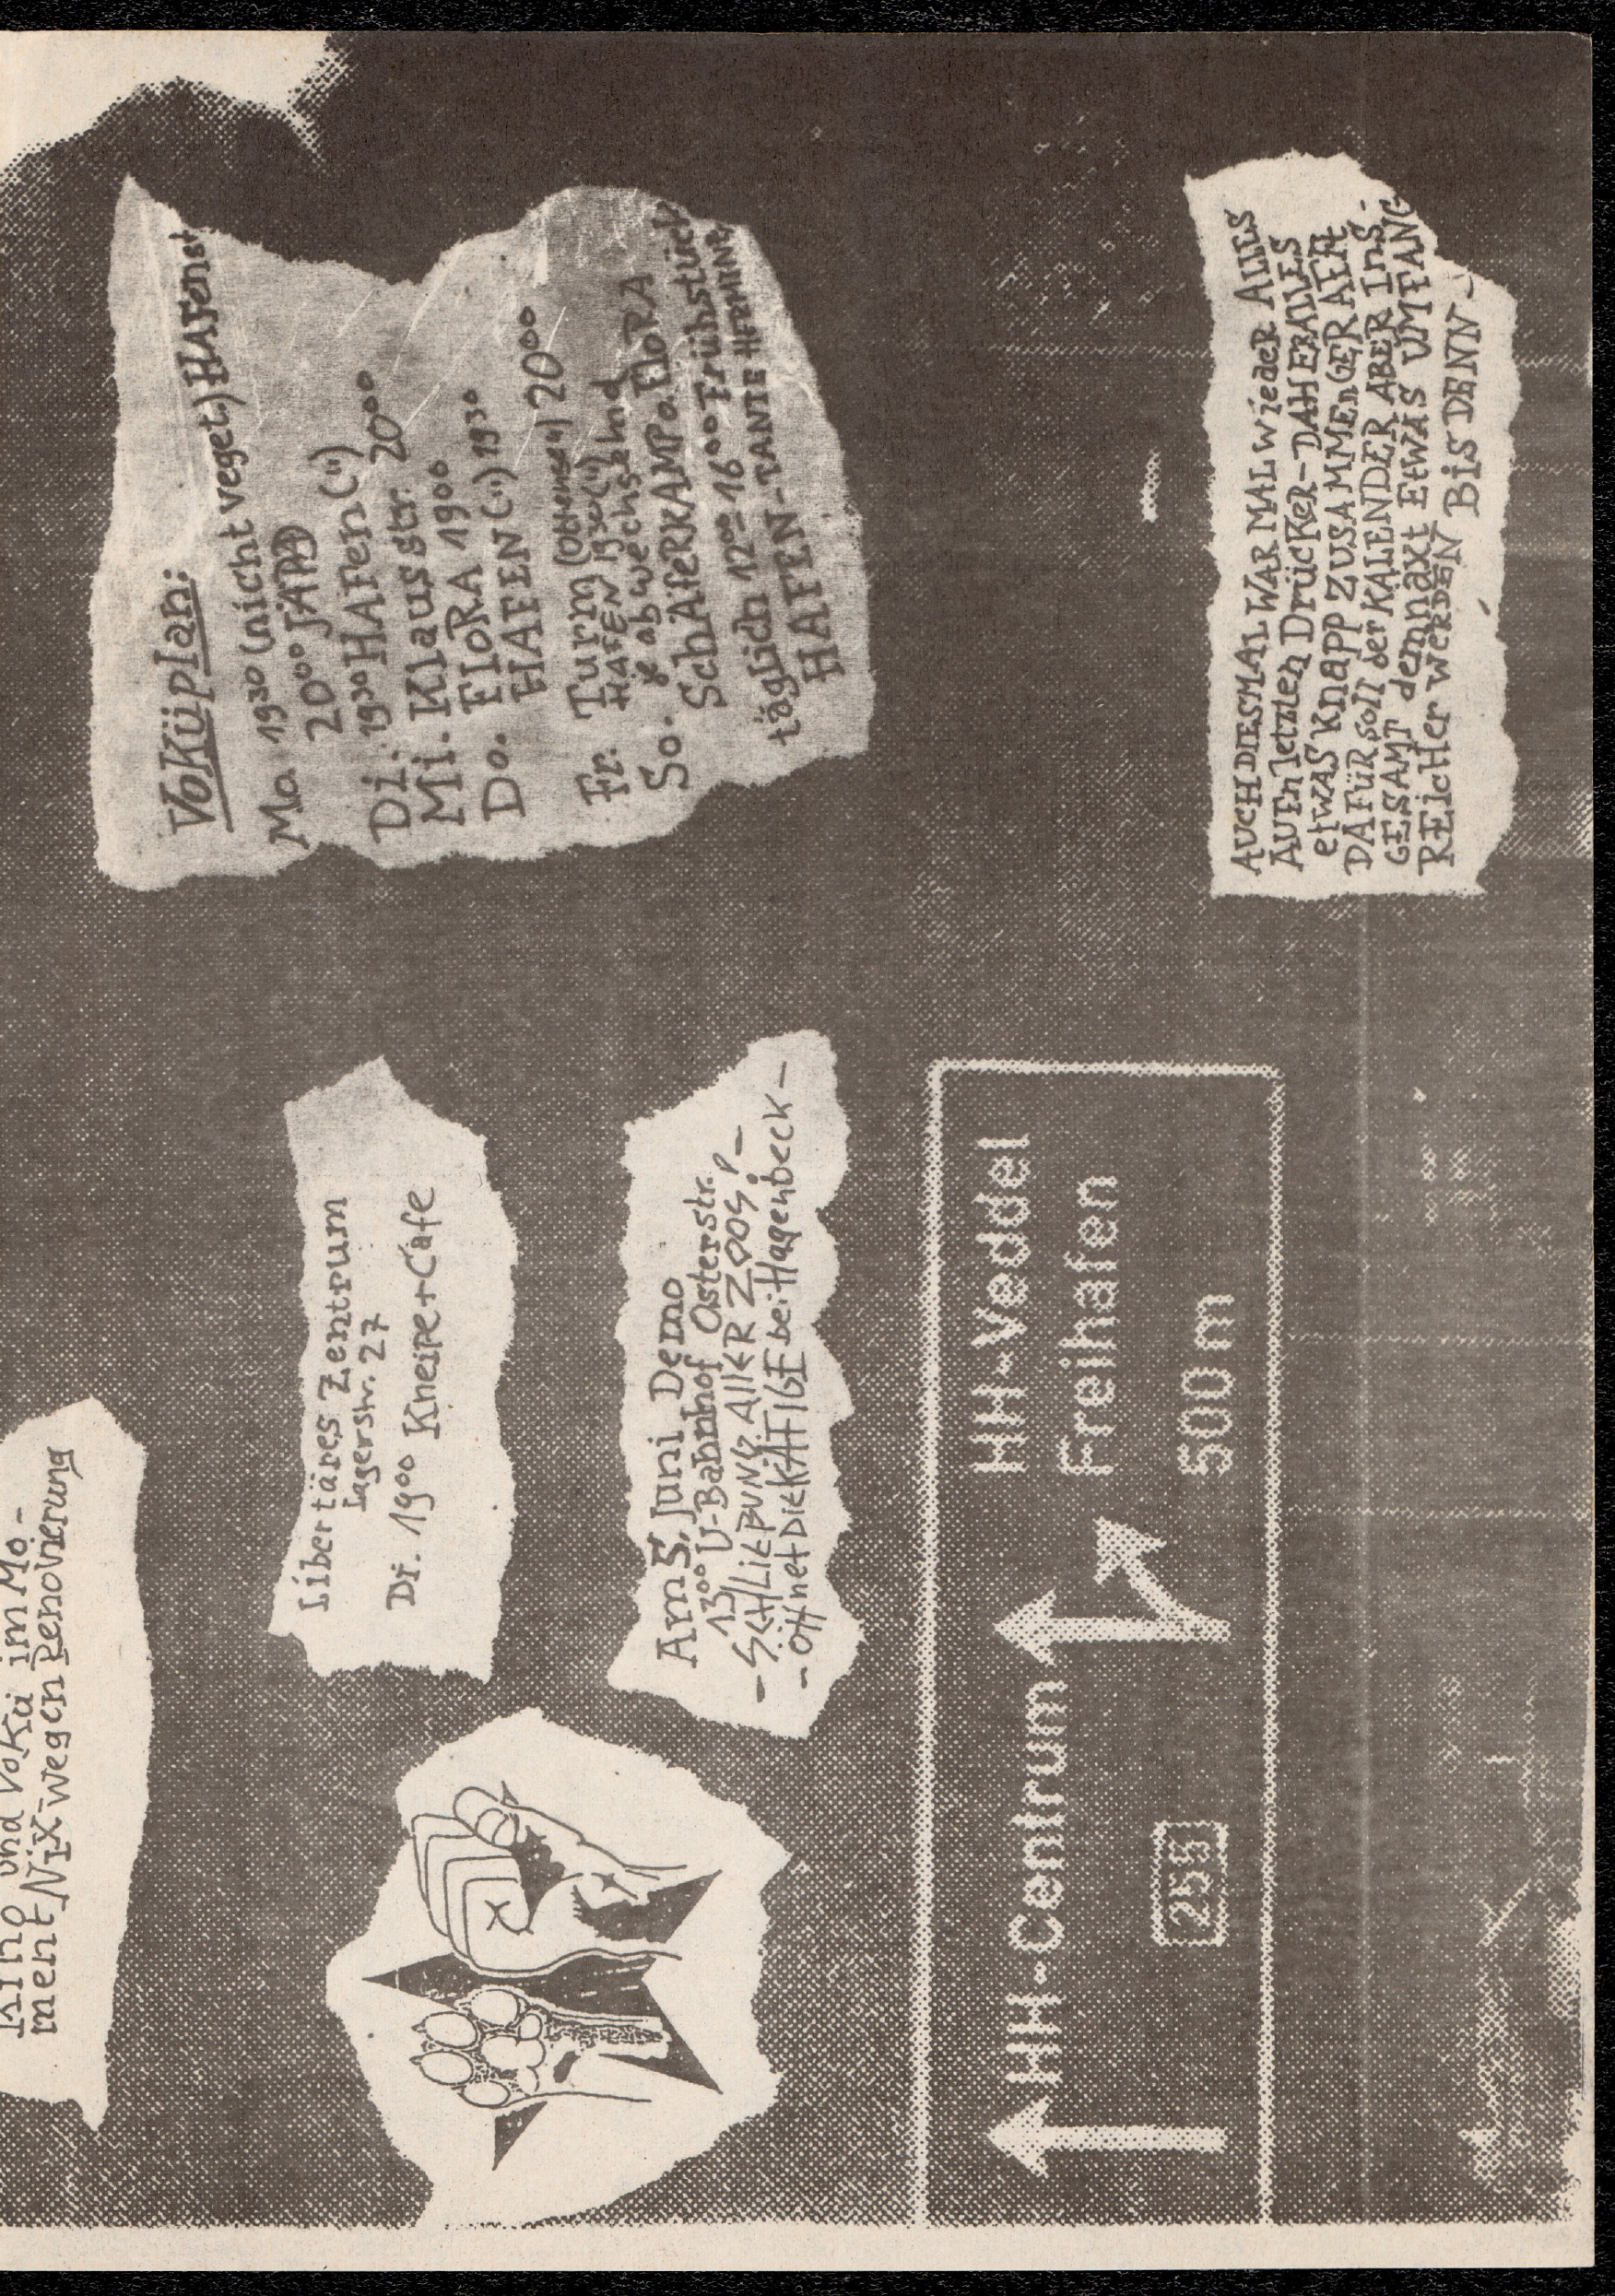 Kino und Vokü im Mo-
ment Nix-wegen Renovierung
Libertäres Zentrum
Lagerstr. 27
Di. 19⁰⁰ Kneipe+Cafe
Am 5. Juni Demo
13⁰⁰ U-Bahnhof Osterstr.
- SCHLIEßUNG ALLER ZOOS! -
- Öffnet DIE KÄFIGE bei Hagenbeck -
HH-Centrum
255
HH-Veddel
Freihafen
500 m
VoKüplan:
Mo 19³⁰ (nicht veget) HAFenst
20⁰⁰ JAPD
Di. 19³⁰ HAFen (")
Mi. Klausstr. 20⁰⁰
FloRA 19⁰⁰
Do. HAFEN (") 19³⁰
Fr. Turm (Ottensen) 20⁰⁰
HAFEN 19³⁰ (")
So. je abwechselnd
SchÄfeRKAMP o. FloRA
täglich 12⁰⁰-16⁰⁰ Frühstück
HAFEN-TANTE HERMINE
AUCH DIESMAL WAR MAL wieder ALLES
AUF'n letzten DrücKer-DAHER ALLES
etWAS KnAPP ZUSAMMENGERAFFT
DAFÜR soll der KALENDER ABER INS-
GESAMT demnäxt EtWAS UMFANG
REICHER WERDEN Bis DENN-